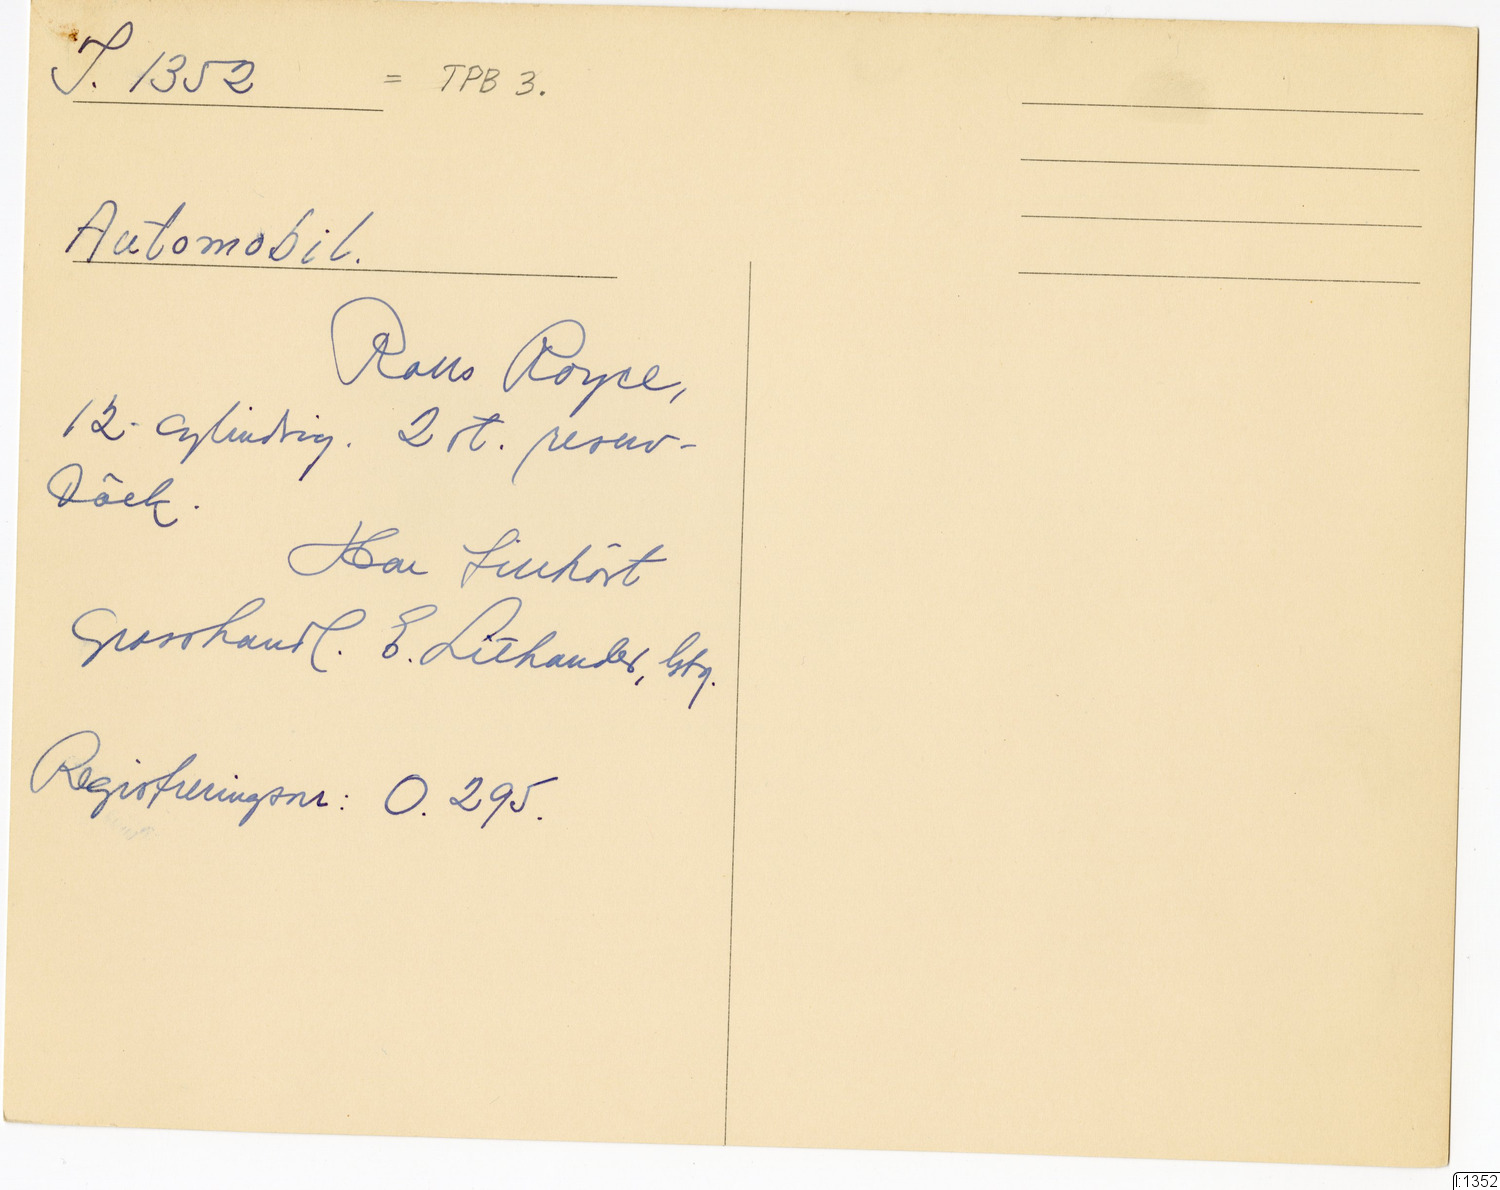 I. 1352 = TPB 3.
Automobil.
Rolls Royce,
12-cylindrig. 2 st. reserv-
däck.
Har tillhört
Grosshandl. E. Lithander, Gbg.
Registreringsnr: O. 295.
I:1352